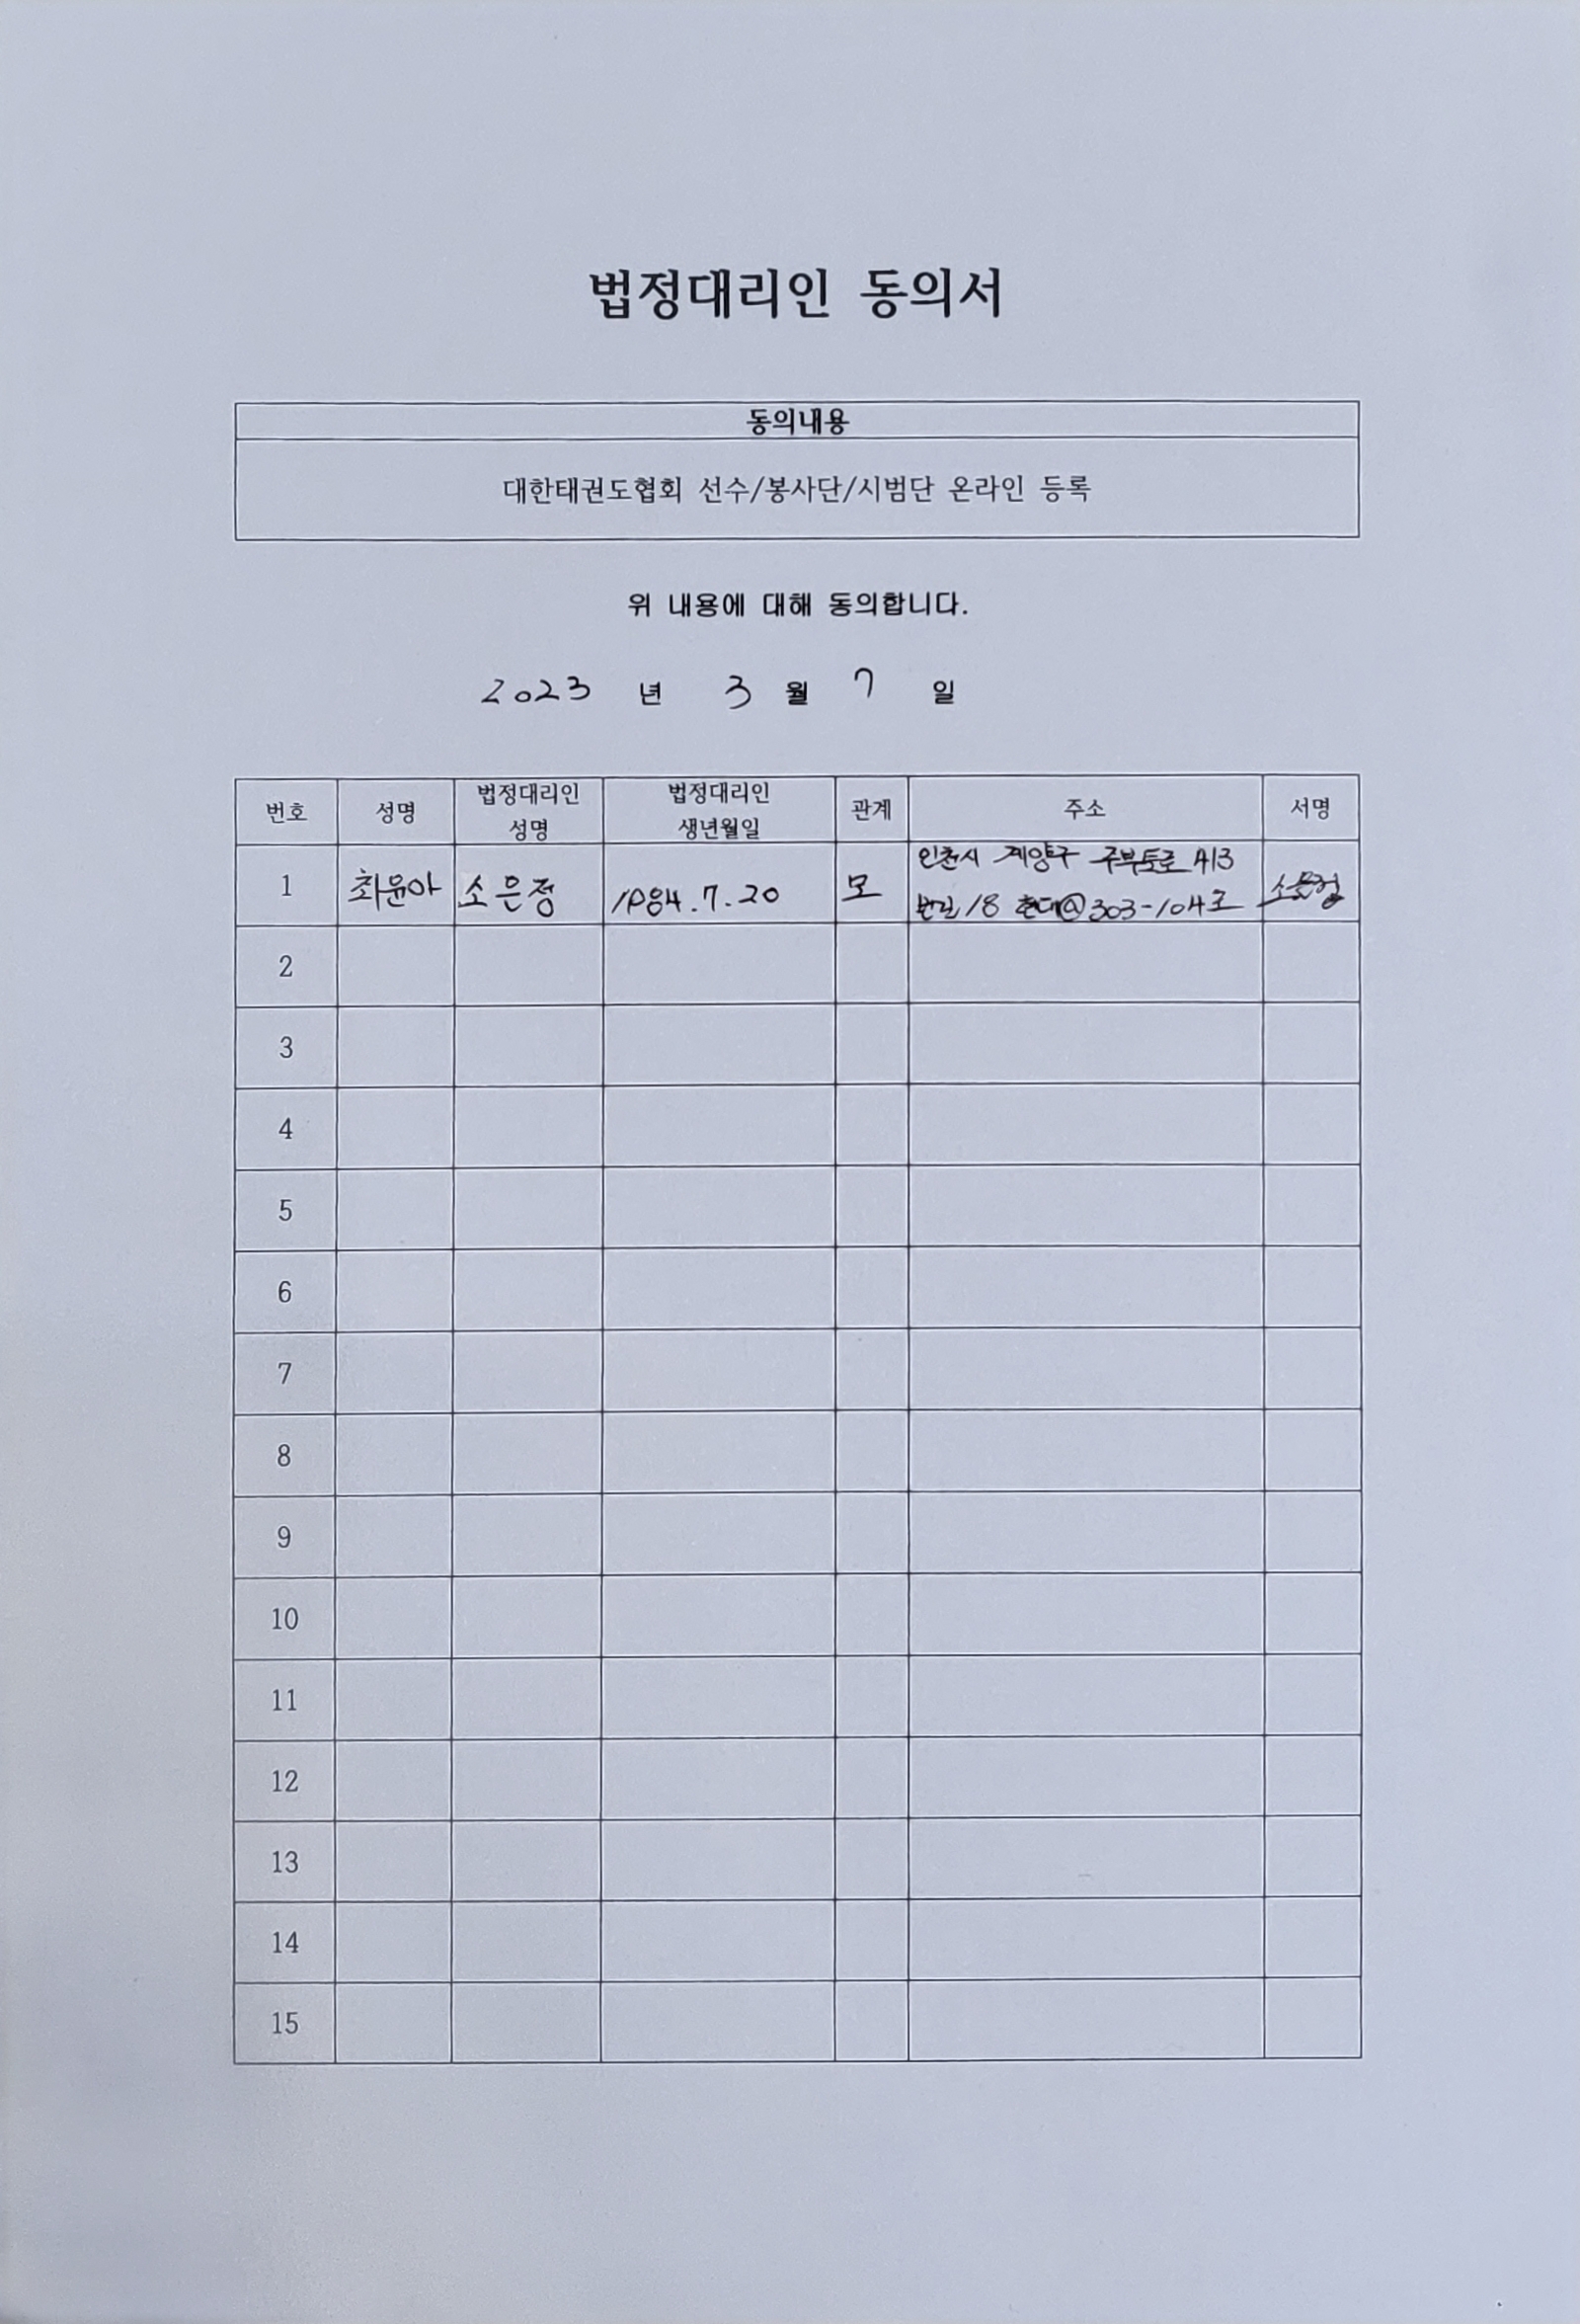 법정대리인 동의서
동의내용
대한태권도협회 선수/봉사단/시범단 온라인 등록
위 내용에 대해 동의합니다.
2023 년 3 월 7 일
번호 성명 법정대리인 성명 법정대리인 생년월일 관계 주소 서명
1 최윤아 소은정 1984.7.20 모 인천시 계양구 주부토로 413 소은정
번길 18 현대@ 303-104호
2
3
4
5
6
7
8
9
10
11
12
13
14
15